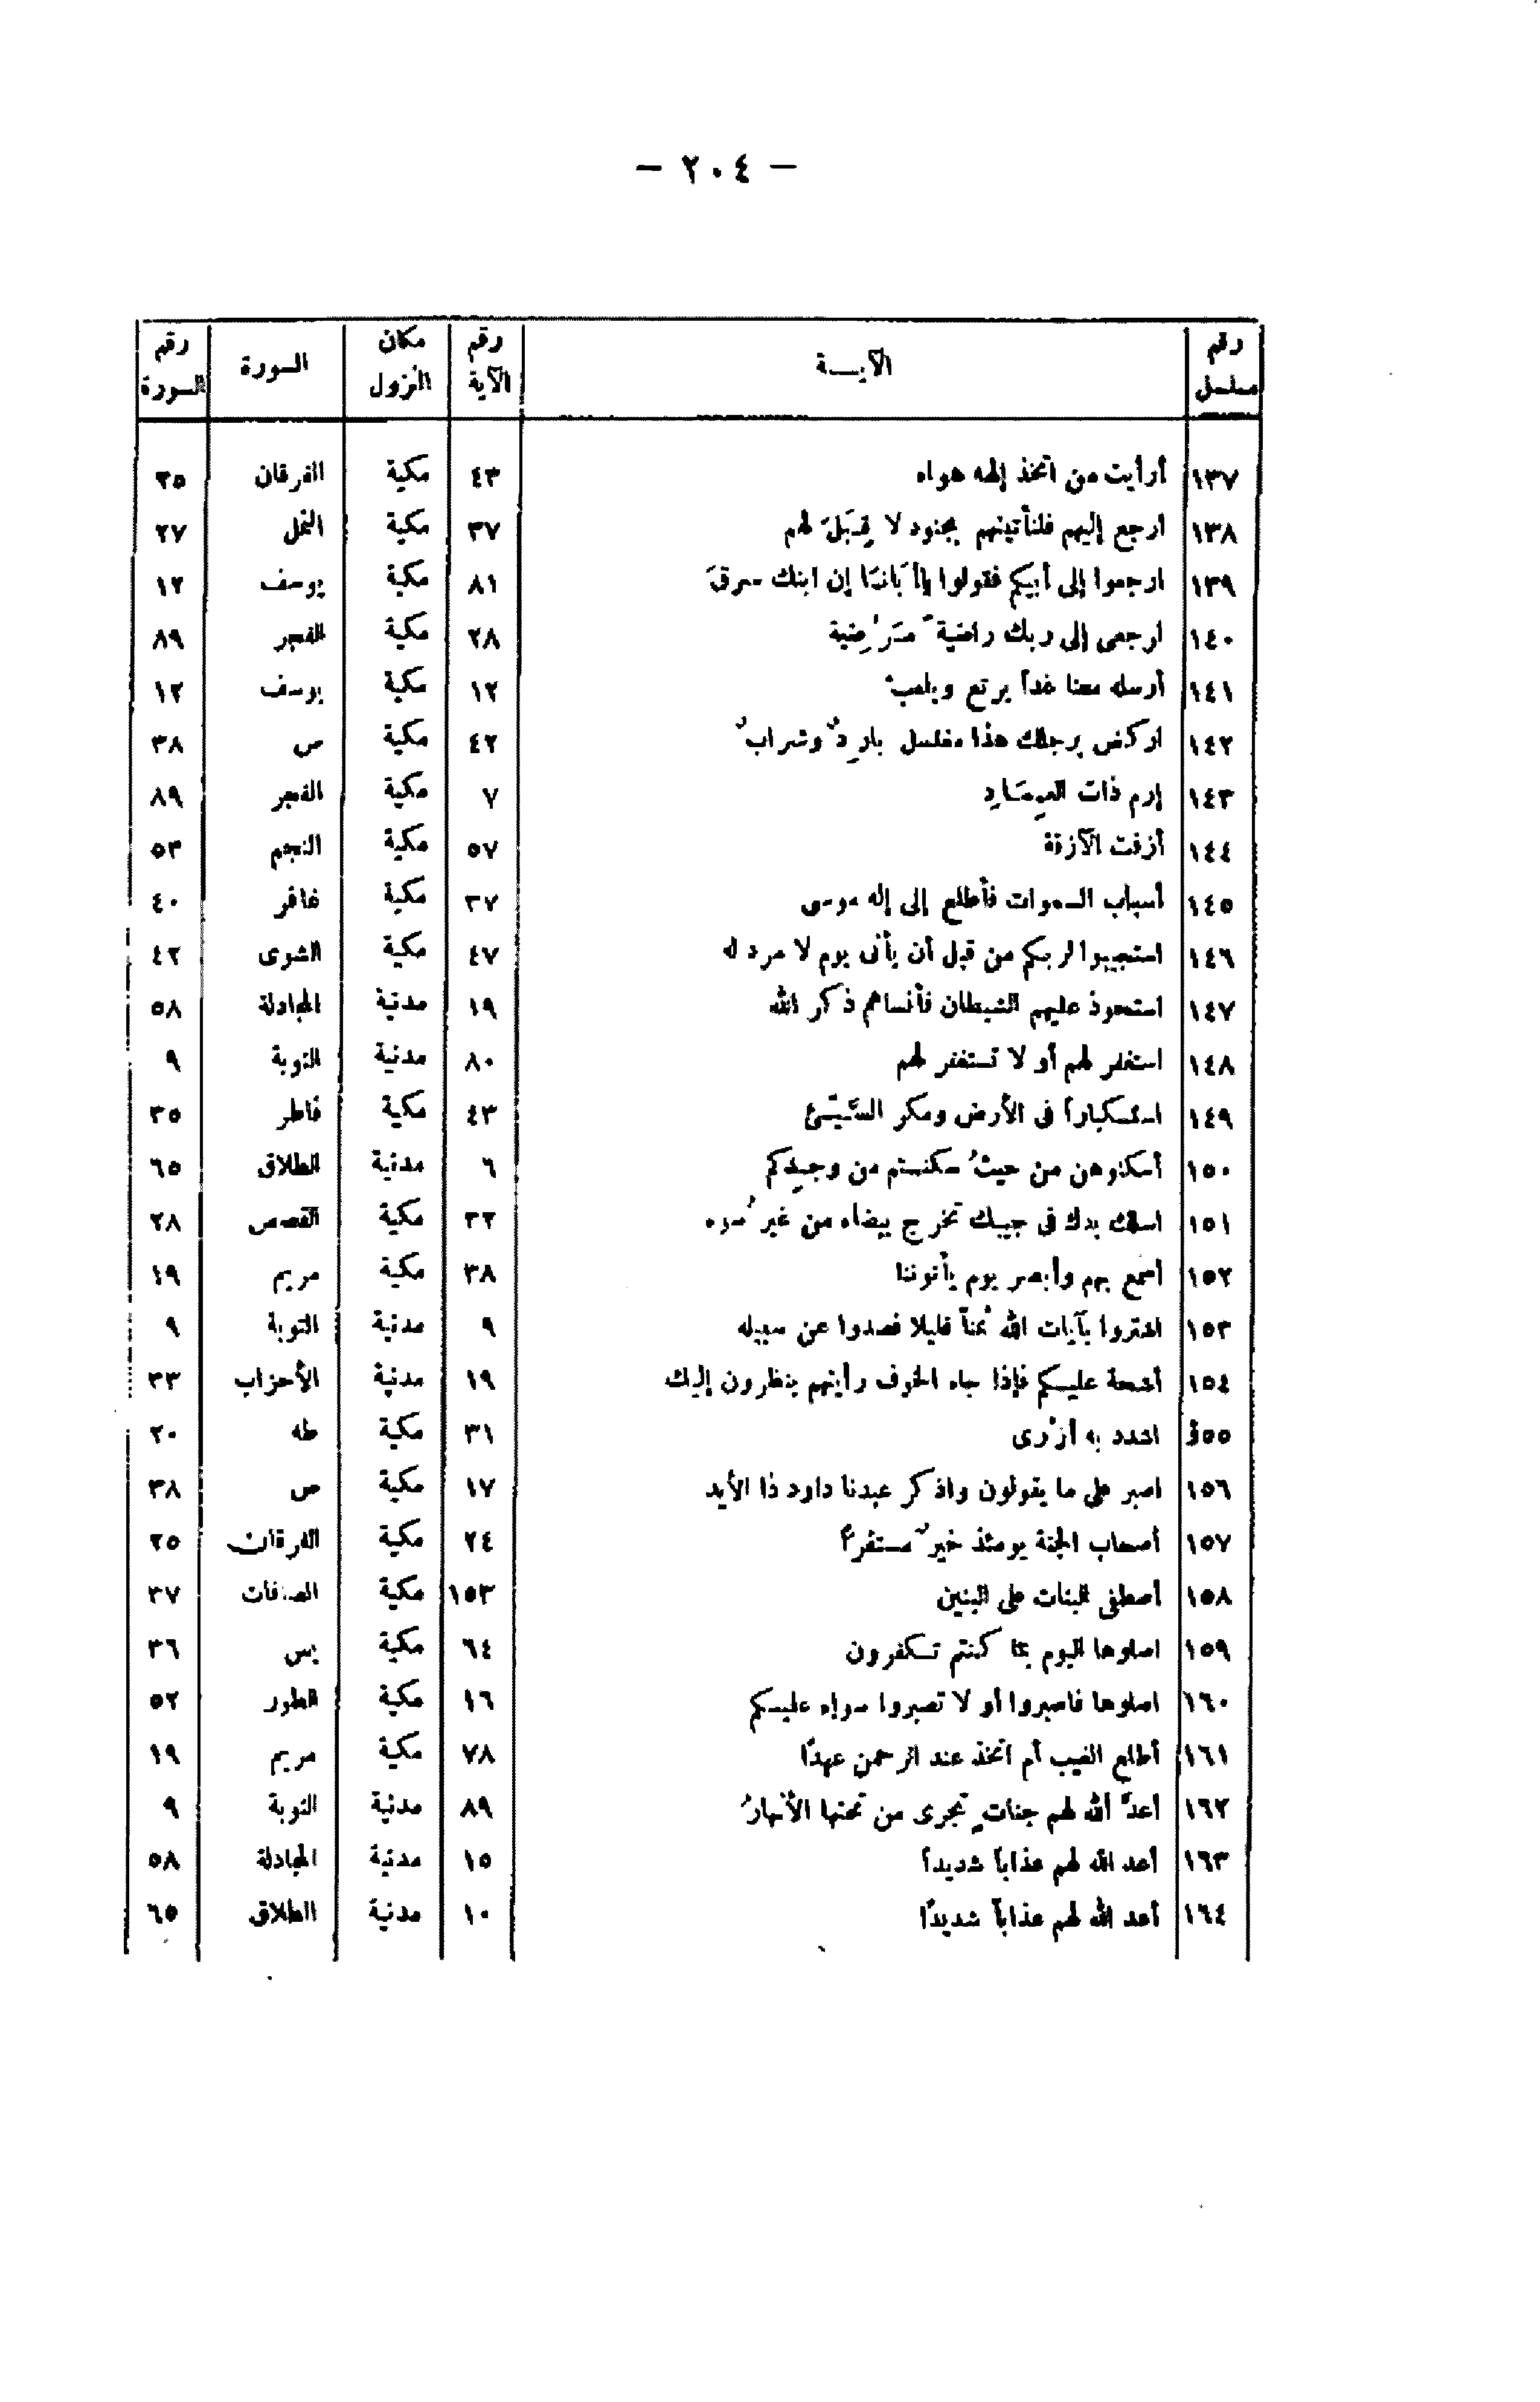 — ٢٠٤ —
رقم مسلسل | الآيـــة | رقم الآية | مكان النزول | السورة | رقم السورة
١٣٧ | أرأيت من اتخذ إلهه هواه | ٤٣ | مكية | الفرقان | ٢٥
١٣٨ | ارجع إليهم فلنأتينهم بجنود لا قِبَلَ لهم | ٣٧ | مكية | النمل | ٢٧
١٣٩ | ارجعوا إلى أبيكم فقولوا يا أَبَانَا إن ابنك سرقَ | ٨١ | مكية | يوسف | ١٢
١٤٠ | ارجعى إلى ربك راضيةً مَرْضِية | ٢٨ | مكية | الفجر | ٨٩
١٤١ | أرسله معنا غداً يرتع ويلعبْ | ١٢ | مكية | يوسف | ١٢
١٤٢ | اركض برجلك هذا مغتسل باردٌ وشرابٌ | ٤٢ | مكية | ص | ٣٨
١٤٣ | إرم ذات العِمَادِ | ٧ | مكية | الفجر | ٨٩
١٤٤ | أزفت الآزفة | ٥٧ | مكية | النجم | ٥٣
١٤٥ | أسباب السموات فأطلع إلى إله موسى | ٣٧ | مكية | غافر | ٤٠
١٤٦ | استجيبوا لربكم من قبل أن يأتى يوم لا مرد له | ٤٧ | مكية | الشورى | ٤٢
١٤٧ | استحوذ عليهم الشيطان فأنساهم ذكر الله | ١٩ | مدنية | المجادلة | ٥٨
١٤٨ | استغفر لهم أو لا تستغفر لهم | ٨٠ | مدنية | التوبة | ٩
١٤٩ | استكباراً فى الأرض ومكر السَّيِّئ | ٤٣ | مكية | فاطر | ٣٥
١٥٠ | أسكنوهن من حيثُ سكنتم من وجدِكم | ٦ | مدنية | الطلاق | ٦٥
١٥١ | اسلك يدك فى جيبك تخرج بيضاء من غير سُوء | ٣٢ | مكية | القصص | ٢٨
١٥٢ | أسمع بهم وأبصر يوم يأتوننا | ٣٨ | مكية | مريم | ١٩
١٥٣ | اشتروا بآيات الله ثمناً قليلا فصدوا عن سبيله | ٩ | مدنية | التوبة | ٩
١٥٤ | أشحة عليكم فإذا جاء الخوف رأيتهم ينظرون إليك | ١٩ | مدنية | الأحزاب | ٣٣
١٥٥ | اشدد به أزْرى | ٣١ | مكية | طه | ٢٠
١٥٦ | اصبر على ما يقولون واذكر عبدنا داود ذا الأيد | ١٧ | مكية | ص | ٣٨
١٥٧ | أصحاب الجنة يومئذ خيرٌ مستقراً | ٢٤ | مكية | الفرقان | ٢٥
١٥٨ | أصطفى البنات على البنين | ١٥٣ | مكية | الصافات | ٣٧
١٥٩ | اصلوها اليوم بما كنتم تكفرون | ٦٤ | مكية | يس | ٣٦
١٦٠ | اصلوها فاصبروا أو لا تصبروا سواء عليكم | ١٦ | مكية | الطور | ٥٢
١٦١ | أطلع الغيب أم اتخذ عند الرحمن عهدًا | ٧٨ | مكية | مريم | ١٩
١٦٢ | أعدَّ الله لهم جناتٍ تجرى من تحتها الأنهارُ | ٨٩ | مدنية | التوبة | ٩
١٦٣ | أعد الله لهم عذاباً شديداً | ١٥ | مدنية | المجادلة | ٥٨
١٦٤ | أعد الله لهم عذاباً شديدًا | ١٠ | مدنية | الطلاق | ٦٥